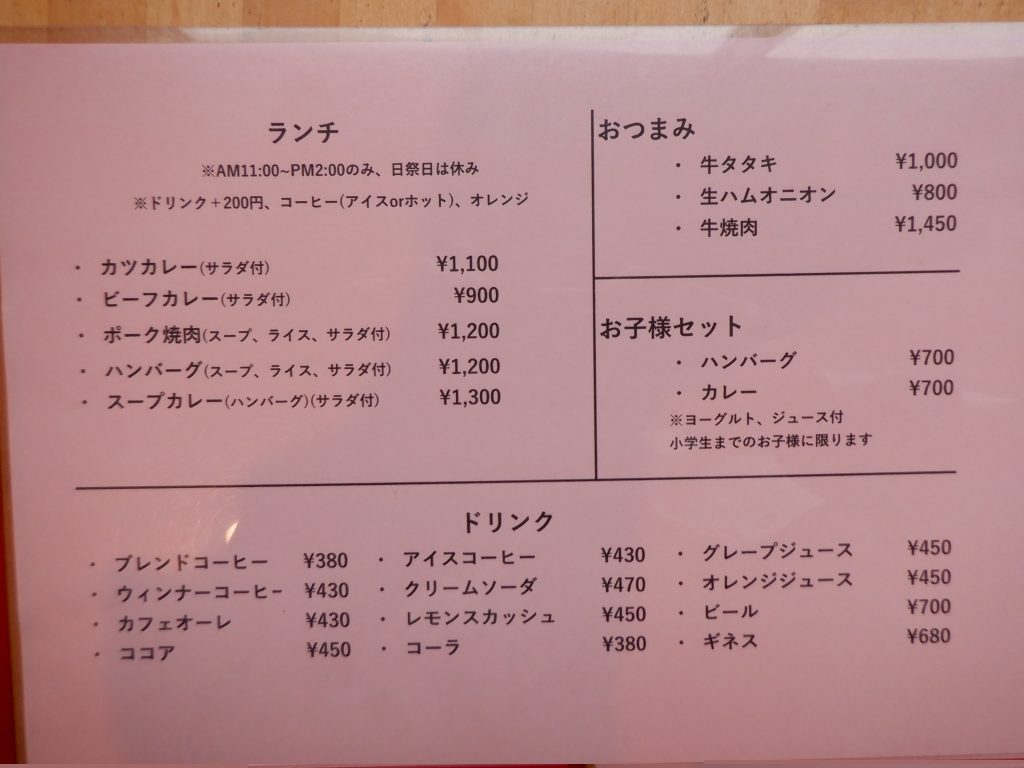 ランチ
※AM11:00~PM2:00のみ、日祭日は休み
※ドリンク＋200円、コーヒー(アイスorホット)、オレンジ
・ カツカレー(サラダ付) ¥1,100
・ ビーフカレー(サラダ付) ¥900
・ ポーク焼肉(スープ、ライス、サラダ付) ¥1,200
・ ハンバーグ(スープ、ライス、サラダ付) ¥1,200
・ スープカレー(ハンバーグ)(サラダ付) ¥1,300
おつまみ
・ 牛タタキ ¥1,000
・ 生ハムオニオン ¥800
・ 牛焼肉 ¥1,450
お子様セット
・ ハンバーグ ¥700
・ カレー ¥700
※ヨーグルト、ジュース付
小学生までのお子様に限ります
ドリンク
・ ブレンドコーヒー ¥380 ・ アイスコーヒー ¥430 ・ グレープジュース ¥450
・ ウィンナーコーヒー ¥430 ・ クリームソーダ ¥470 ・ オレンジジュース ¥450
・ カフェオーレ ¥430 ・ レモンスカッシュ ¥450 ・ ビール ¥700
・ ココア ¥450 ・ コーラ ¥380 ・ ギネス ¥680